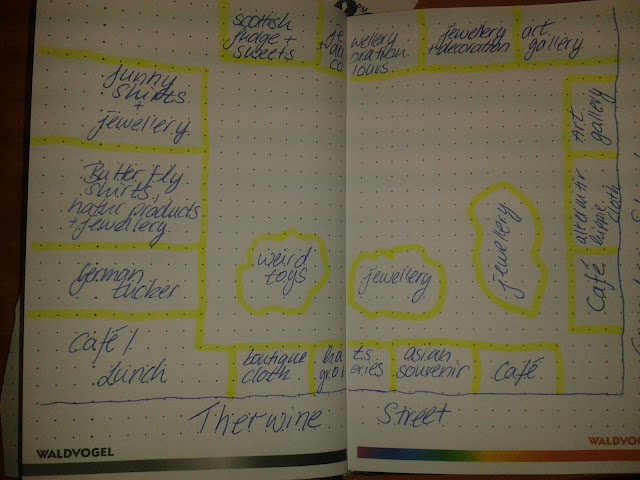 scottish
fudge +
sweets
wellery
oration
jewellery
+ decoration
art
gallery
funny
shirts
+
jewellery
Butterfly
shirts,
natur products
+ jewellery
german
tucker
Café /
Lunch
weird
toys
jewellery
jewellery
Art
gallery
alternativ
hippie cloth
Café
boutique
cloth
ts
eries
asian
souvenir
Café
Therwine Street
WALDVOGEL
WALDVO